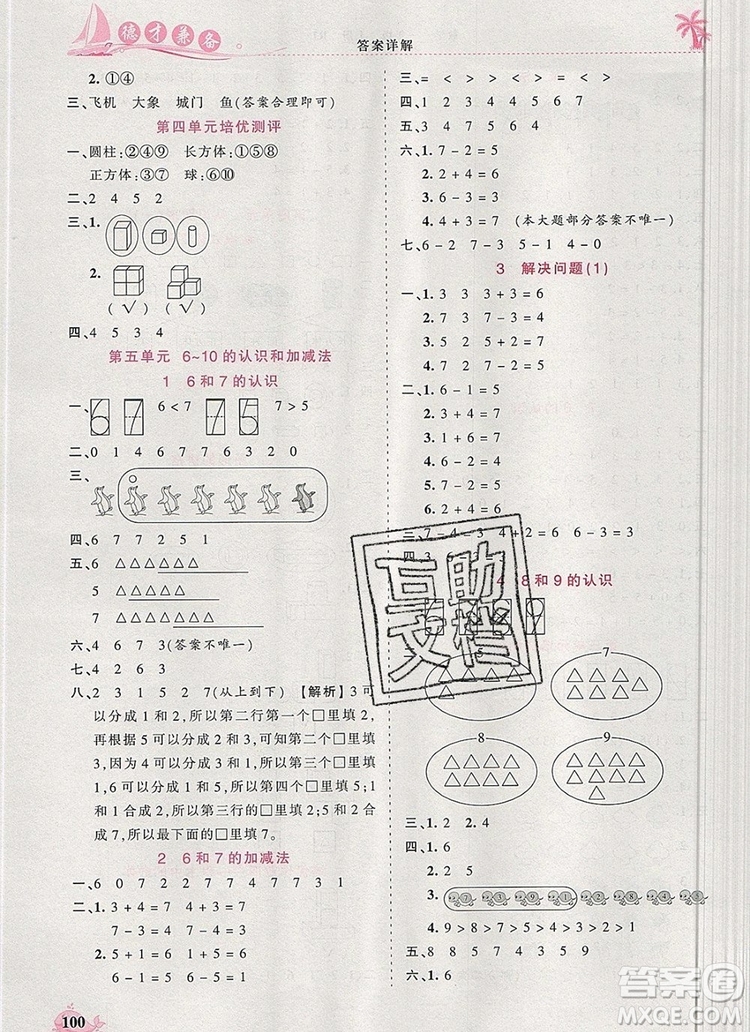 德才兼备
答案详解
2. ①④
三、飞机 大象 城门 鱼(答案合理即可)
第四单元培优测评
一、圆柱:②④⑨ 长方体:①⑤⑧
正方体:③⑦ 球:⑥⑩
二、2 4 5 2
三、1.
2.
(√) (√)
四、4 5 3 4
第五单元 6~10的认识和加减法
1 6和7的认识
一、6 7 6<7 7 5 7>5
二、0 1 4 6 7 6 3 2 0
三、
四、6 7 7 2 5 1
五、6 △△△△△△
5 △△△△△
7 △△△△△△△
六、4 6 7 3(答案不唯一)
七、4 2 6 3
八、2 3 1 5 2 7(从上到下) 【解析】3可
以分成1和2,所以第二行第一个□里填2,
再根据5可以分成2和3,可知第二个□里填
3,因为4可以分成3和1,所以第三个□里填
1,6可以分成1和5,所以第四个□里填5;5可
以分成3和2,所以第三行的□里填2;5和2合
成7,所以最下面的□里填7。
2 6和7的加减法
一、6 0 7 2 7 7 4 7 7 3 1
二、1. 3+4=7 4+3=7
7-3=4 7-4=3
2. 5+1=6 1+5=6
6-1=5 6-5=1
100
三、= < > < > >
四、1 2 3 4 5 6 7
五、3 4 7 9
六、1. 7-2=5
2. 2+4=6
3. 6-3=3
4. 4+3=7 (本大题部分答案不唯一)
七、6-2 7-3 5-1 4-0
3 解决问题(1)
一、1. 3 3 3+3=6
2. 7 3 7-3=4
3. 6 5 6-5=1
4. 7 2 7-2=5
二、1. 6-4=2
2. 3+4=7
3. 2+4=6
4. 7-2=5
5. 7-2=5
三、7-4=3 4+2=6 6-3=3
四、3
8和9的认识
5
7
8
9
三、1. 2 2. 4
四、1. 6
2. 2 5
3.
4. 9>8>7>6>5>4>2>1
五、8 8 5 7 4 3 9
六、1. 6
答案圈
互助文档